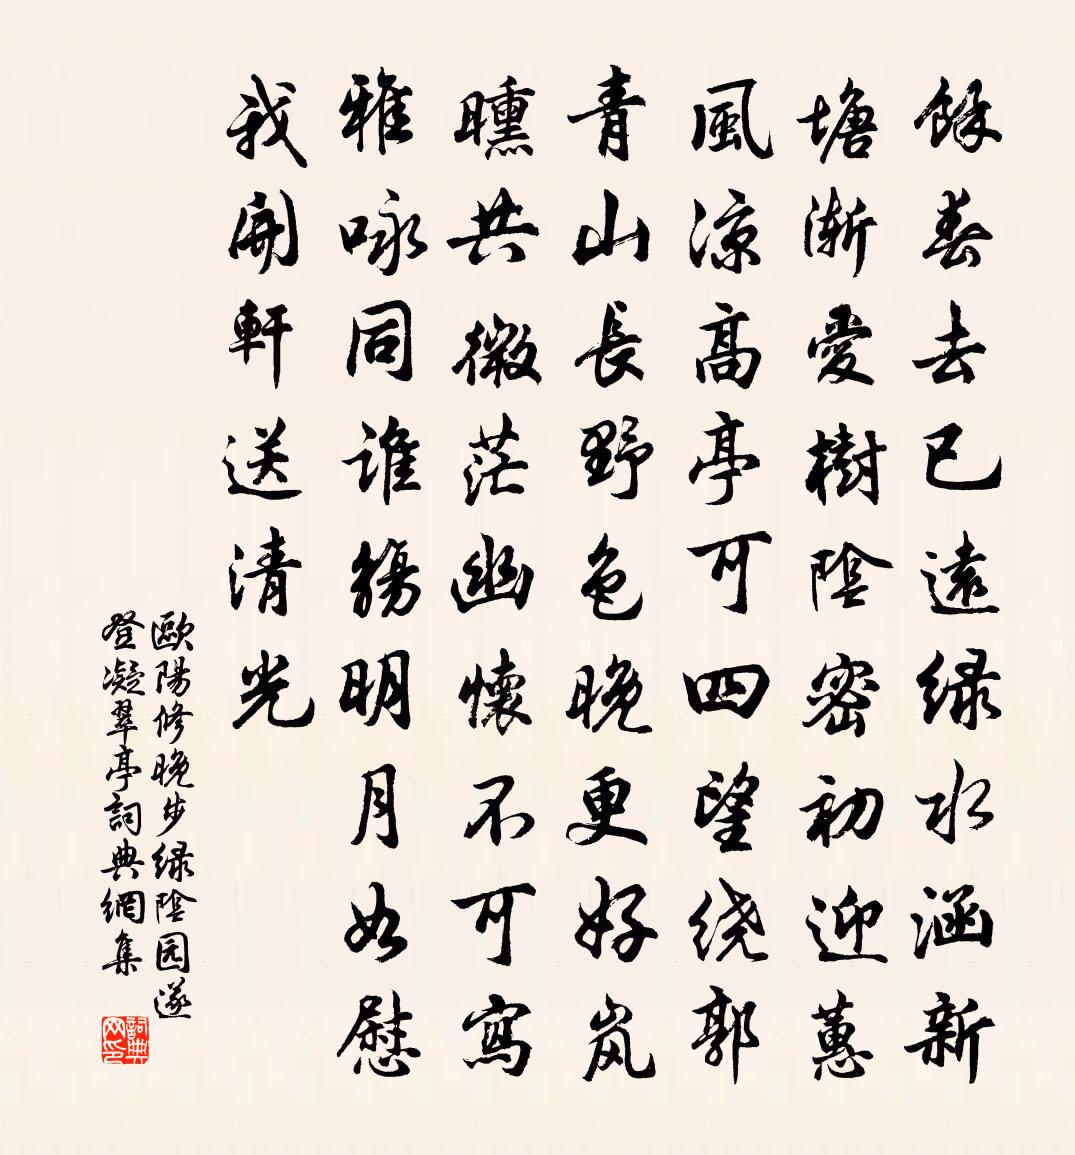 餘春去已遠绿水涵新
塘漸愛樹陰密初迎蕙
風涼高亭可四望绕郭
青山長野色晚更好岚
曛共微茫幽懷不可寫
雅咏同誰觴明月如慰
我開軒送清光
歐陽修晚步绿陰园遂
登凝翠亭詞典網集
詞典网印